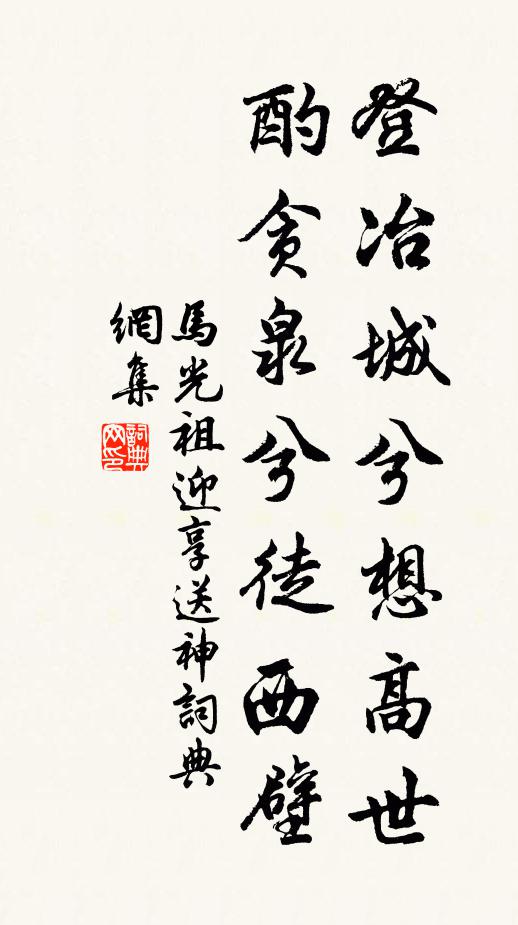 登冶城兮想高世
酌貪泉兮徒西壁
馬光祖迎享送神詞典
網集
詞典網印